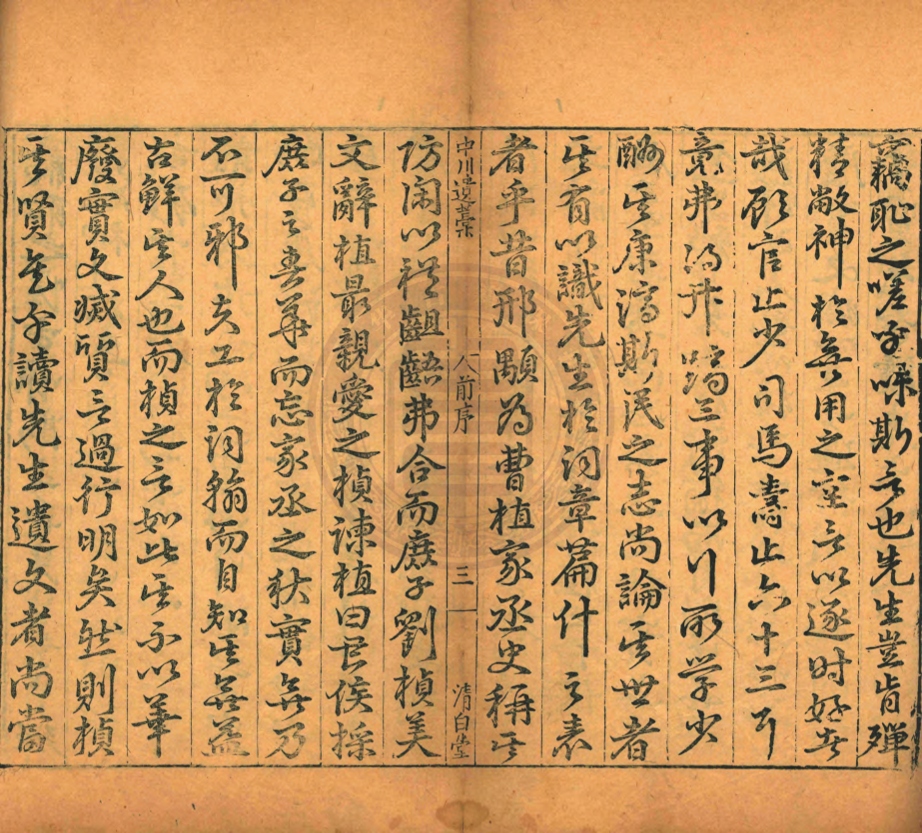 恥之嗟乎斯言也先生豈肯殫
精敝神於無用之空言以逐时好者
哉顧官止少司馬壽止六十三耳
竟弗得升躋三事以行所学少
酬其康濟斯民之志尚論其世者
其有以識先生於詞章篇什之表
者乎昔邢顒為曹植家丞史稱其
中川遺藁 前序 三 清白堂
防闲以禮齟齬弗合而庶子劉楨美
文辭植最親愛之楨諫植曰君侯採
庶子之春華而忘家丞之秋實無乃
不可邪夫工於詞翰而自知其無益
古鮮其人也而楨之言如此其不以華
廢實文滅質言過行明矣然則楨
其賢矣乎讀先生遺文者尚當